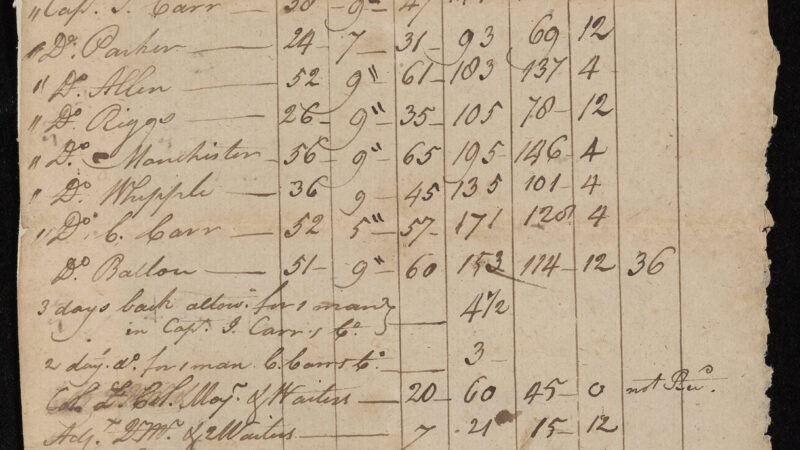 " Cap. J. Carr — 38 9"
" Do. Parker — 24 - 7 - 31 - 93 69 12
" Do. Allen — 52 9" 61 - 183 137 4
" Do. Riggs — 26 - 9" - 35 - 105 78 - 12
" Do. Manchester - 56 - 9" - 65 195 - 146 4
" Do. Whipple — 36 9 - 45 135 101 - 4
" Do. C. Carr — 52 5" - 57 - 171 128 4
Do. Ballou — 51 - 9" - 60 153 114 - 12 36
3 days back allow. for 1 man } — 4 1/2
in Cap. J. Carr's Co.
2 day. do. for 1 man C. Carrs Co. — 3 -
Col. Lt. Col. Maj. & Waiters — 20 - 60 45 - 0 not
Adj. & 2 Waiters — 7 - 21 15 - 12